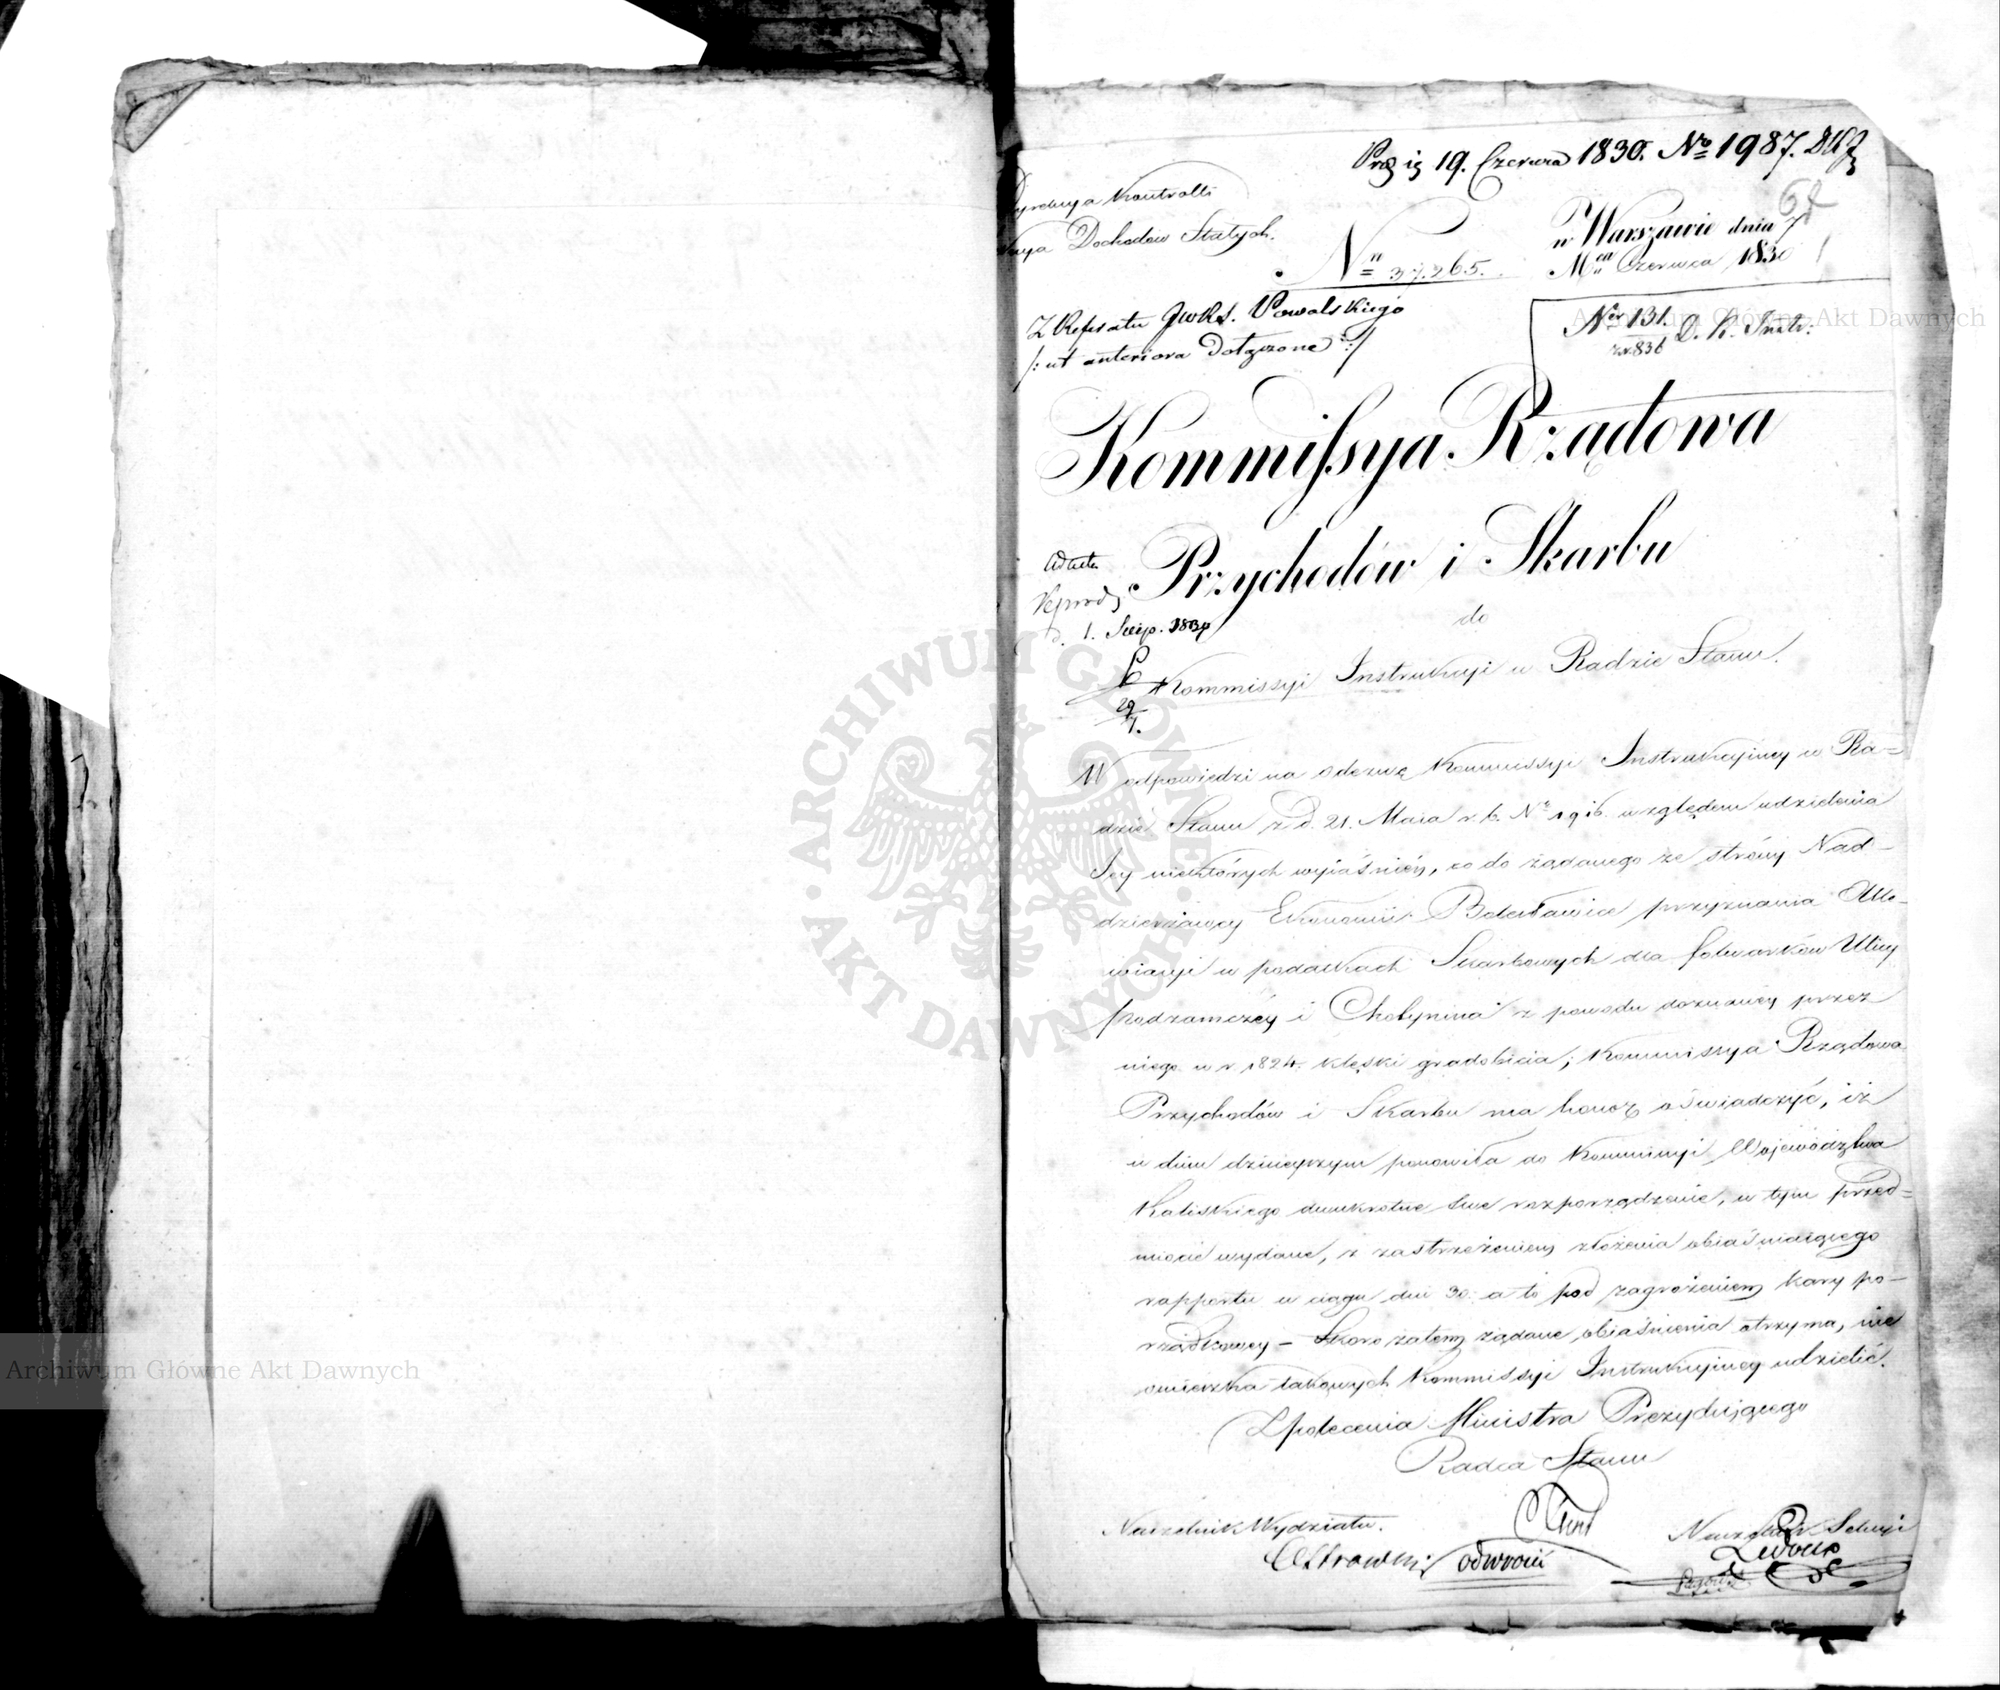 19. Czerwca 1830. No 1987.
Dyrekcya Kontrolli
Dochodow Stałych.
Nn 37.265.
w Warszawie dnia 7
Mca Czerwca 1830
Z Referatu JWRS. Powalskiego
/: ut anteriora dołączone :/
Ner 131. D. K. Instr:
z r. 836
Kommissya Rządowa
Przychodów i Skarbu
do
1. Sierp. 1830
Kommissyi Instrukcyi w Radzie Stanu.
29
7.
W odpowiedzi na odezwę Kommissyi Instrukcyiney w Ra=
dzie Stanu z d. 21. Maia r. b. No 1916. względem udzielenia
Jey niektórych wyiaśnień, co do żądanego ze strony Nad-
dzierżawcy Ekonomii Bolesławice przyznania Alle-
wiacyi w podatkach Skarbowych dla folwarków Ulicy
podzamczey i Chotynina z powodu doznaney przez
niego w r. 1824. klęski gradobicia; Kommissya Rządowa
Przychodów i Skarbu ma honor oświadczyć, iż
w dniu dzisieyszym ponowiła do Kommissyi Województwa
Kaliskiego dwukrotne swe rozporządzenie, w tym przed=
miocie wydane, z zastrzeżeniem złożenia obiaśniaiącego
rapportu w ciągu dni 30. a to pod zagrożeniem kary po-
rządkowey - Skoro zatem żądane obiaśnienia otrzyma, nie
omieszka takowych Kommissyi Instrukcyiney udzielić.
Z polecenia Ministra Prezyduiącego
Radca Stanu
Naczelnik Wydziału.
Naczelnik Sekcyi
odwrócić
Archiwum Główne Akt Dawnych
Archiwum Główne Akt Dawnych
ARCHIWUM GŁÓWNE AKT DAWNYCH